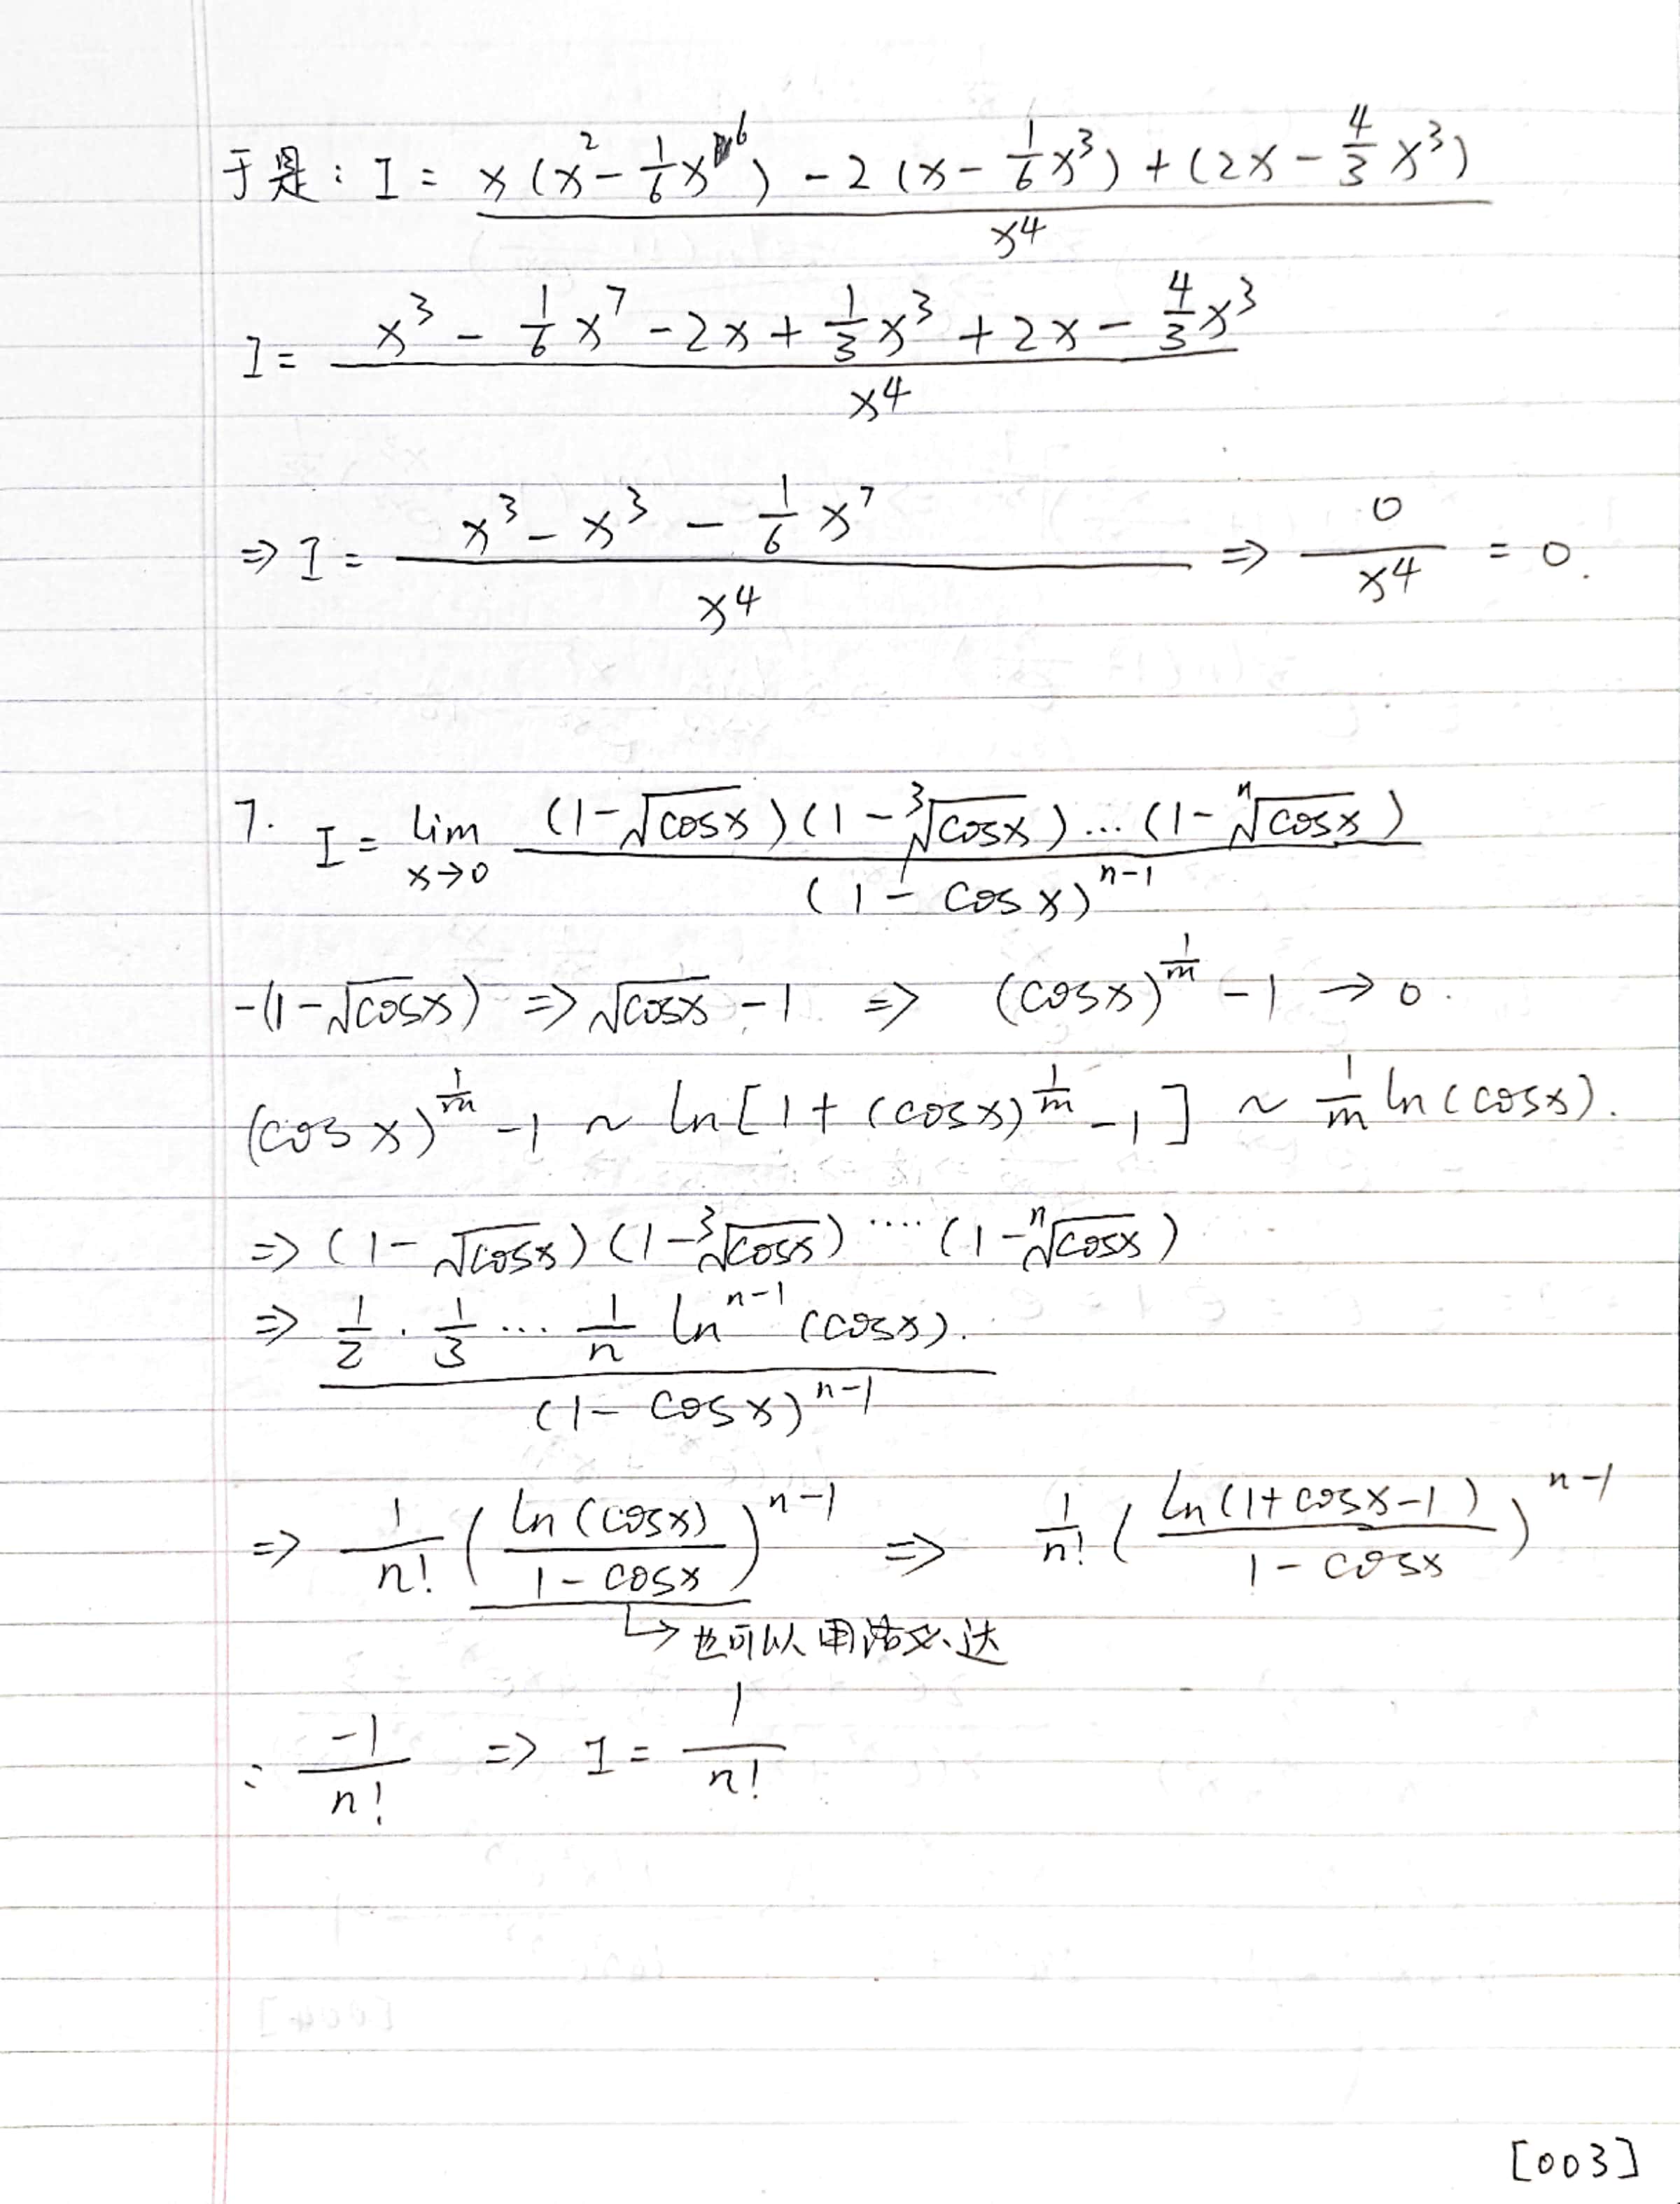 于是: I = \frac{x(x^2 - \frac{1}{6}x^6) - 2(x - \frac{1}{6}x^3) + (2x - \frac{4}{3}x^3)}{x^4}
I = \frac{x^3 - \frac{1}{6}x^7 - 2x + \frac{1}{3}x^3 + 2x - \frac{4}{3}x^3}{x^4}
⇒ I = \frac{x^3 - x^3 - \frac{1}{6}x^7}{x^4} ⇒ \frac{0}{x^4} = 0.
7. I = \lim_{x→0} \frac{(1-\sqrt{cosx})(1-\sqrt[3]{cosx})...(1-\sqrt[n]{cosx})}{(1-cosx)^{n-1}}
-(1-\sqrt{cosx}) ⇒ \sqrt{cosx} - 1 ⇒ (cosx)^{\frac{1}{m}} - 1 → 0.
(cosx)^{\frac{1}{m}} - 1 ~ ln[1 + (cosx)^{\frac{1}{m}} - 1] ~ \frac{1}{m} ln(cosx).
⇒ (1-\sqrt{cosx})(1-\sqrt[3]{cosx})....(1-\sqrt[n]{cosx})
⇒ \frac{\frac{1}{2}·\frac{1}{3}...\frac{1}{n} ln^{n-1}(cosx).}{(1-cosx)^{n-1}}
⇒ \frac{1}{n!}(\frac{ln(cosx)}{1-cosx})^{n-1} ⇒ \frac{1}{n!}(\frac{ln(1+cosx-1)}{1-cosx})^{n-1}
↳ 也可以用洛必达
: \frac{-1}{n!} ⇒ I = \frac{1}{n!}
[003]